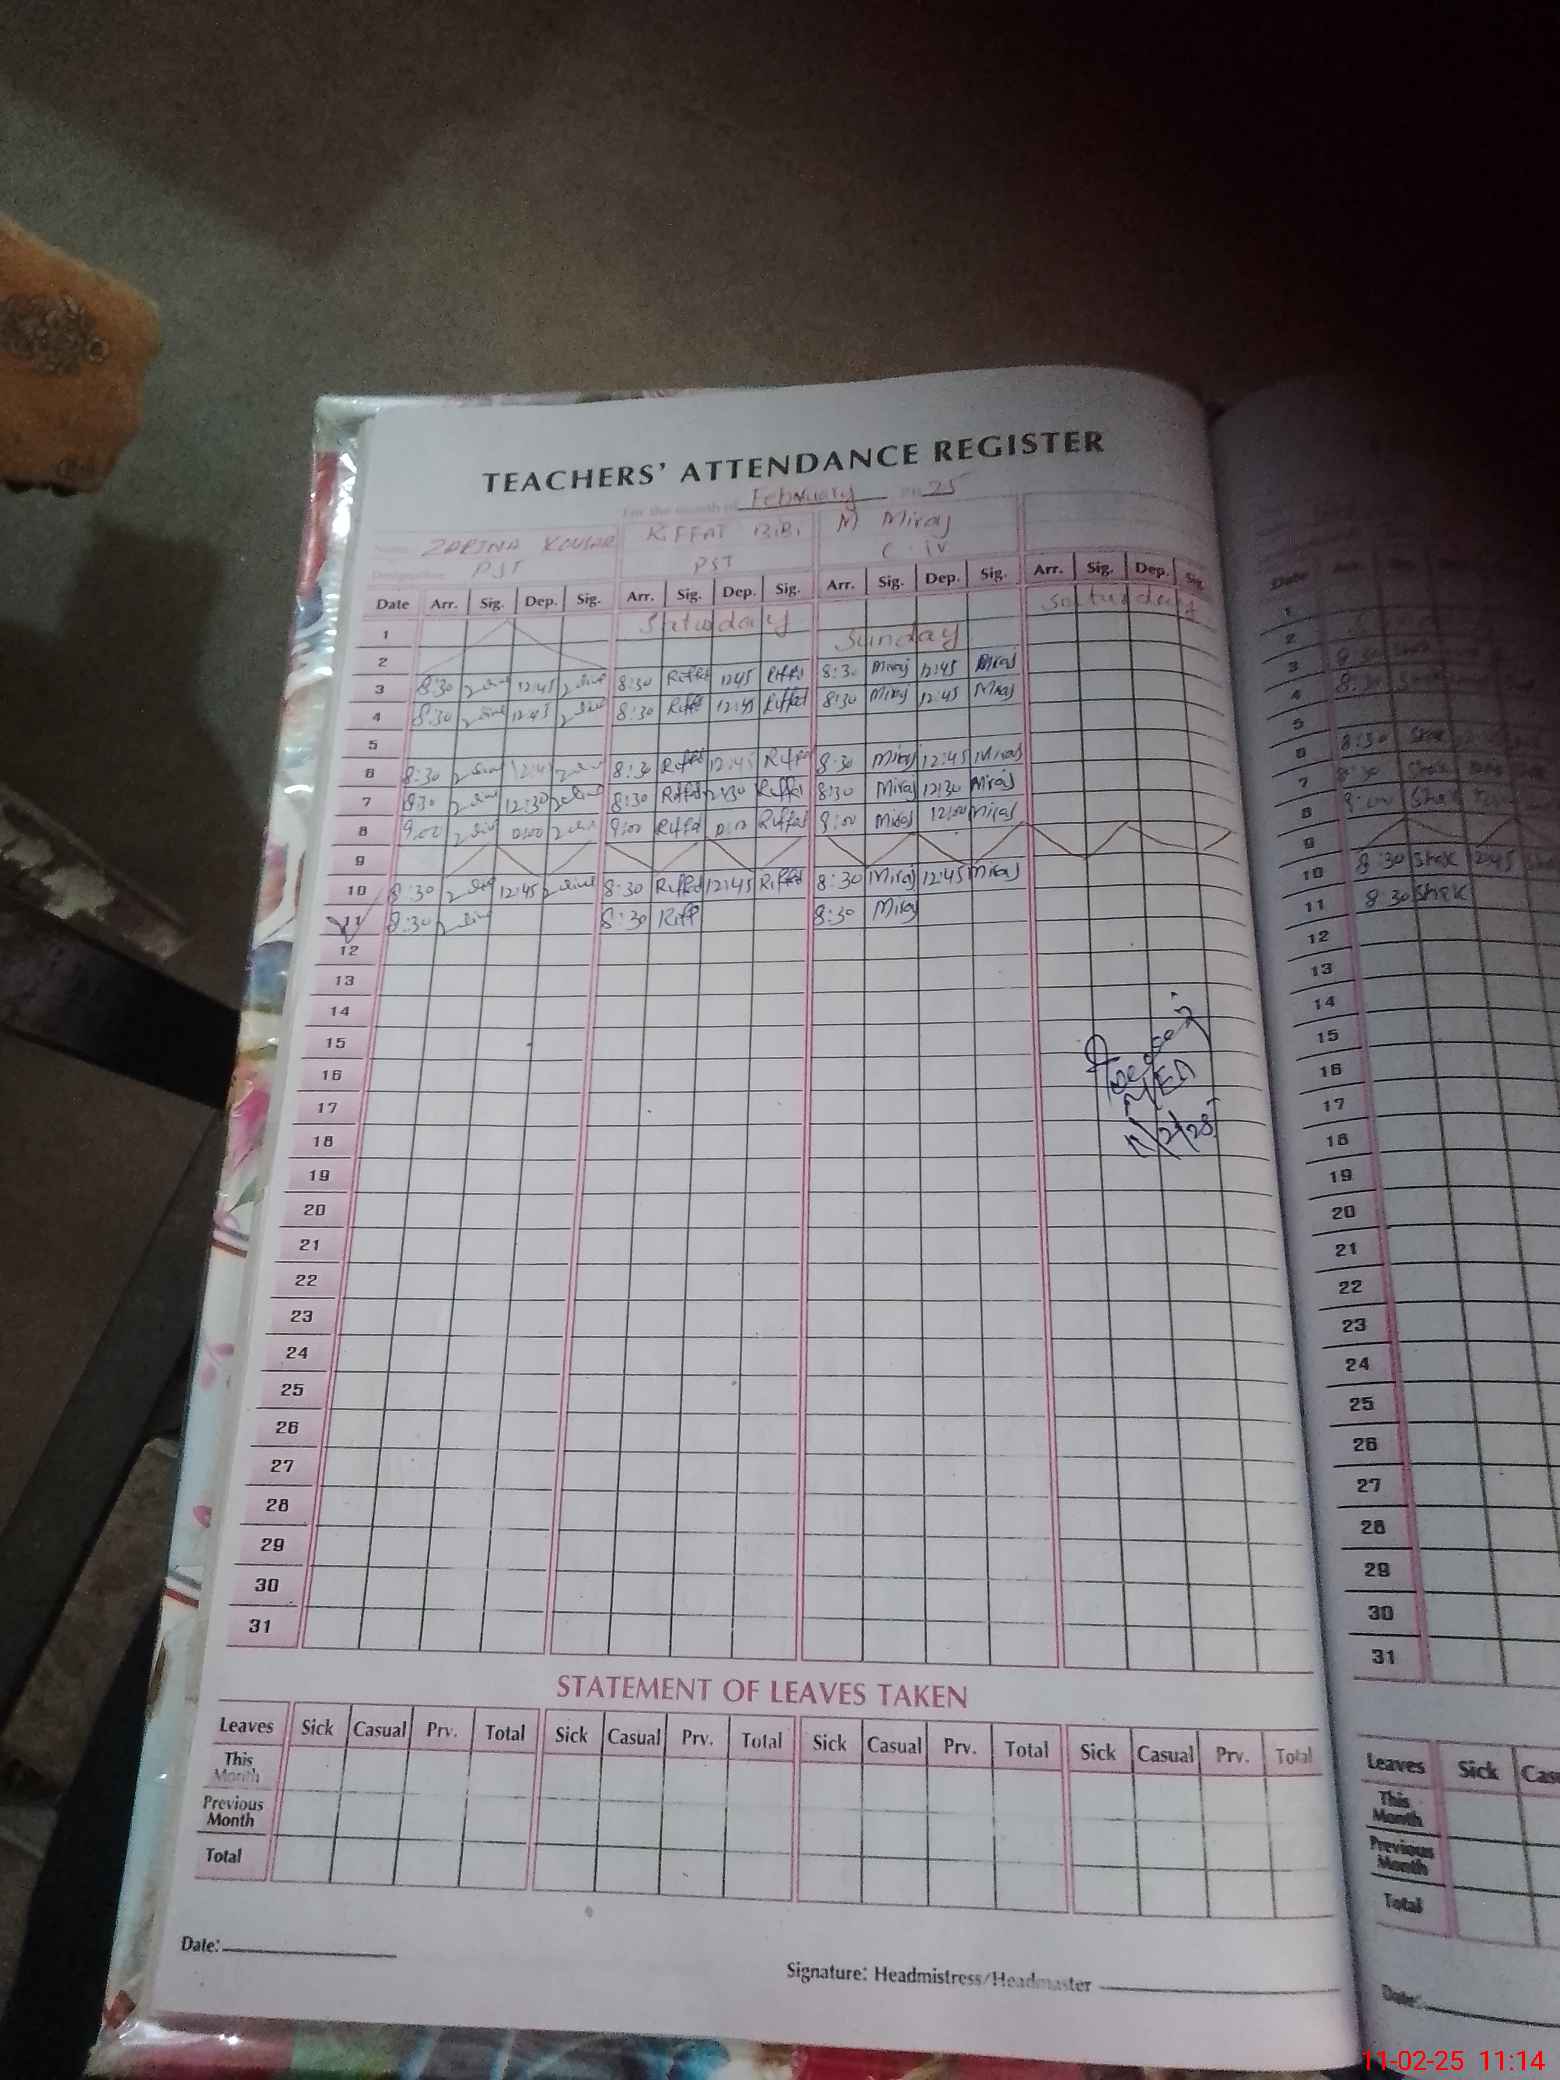 TEACHERS' ATTENDANCE REGISTER
For the month of February 25
Name ZARINA KOUSAR RIFFAT BIBI M Miraj
Designation PST PST C. IV
Date Arr. Sig. Dep. Sig. Arr. Sig. Dep. Sig. Arr. Sig. Dep. Sig. Arr. Sig. Dep. Sig.
1 Saturday Saturday
2 Sunday
3 8:30 12:45 8:30 Riffat 1245 Riffat 8:30 Miraj 12:45 Miraj
4 8:30 12:45 8:30 Riffat 12:45 Riffat 8:30 Miraj 12:45 Miraj
5
6 8:30 12:45 8:30 Riffat 12:45 Riffat 8:30 Miraj 12:45 Miraj
7 8:30 12:30 8:30 Riffat 12:30 Riffat 8:30 Miraj 12:30 Miraj
8 9:00 9:00 Riffat Riffat 9:00 Miraj 12:00 Miraj
9
10 8:30 12:45 8:30 Riffat 12:45 Riffat 8:30 Miraj 12:45 Miraj
11 8:30 8:30 Riff 8:30 Miraj
12
13
14
15
16
17
18
19
20
21
22
23
24
25
26
27
28
29
30
31
STATEMENT OF LEAVES TAKEN
Leaves Sick Casual Prv. Total Sick Casual Prv. Total Sick Casual Prv. Total Sick Casual Prv. Total
This Month
Previous Month
Total
Date:
Signature: Headmistress/Headmaster
Date
1
2
3 8:30
4 8:30
5
6 8:30
7 8:30
8 9:00
9
10 8:30 Shak 12:45
11 8:30 Shak
12
13
14
15
16
17
18
19
20
21
22
23
24
25
26
27
28
29
30
31
Leaves Sick
This Month
Previous Month
Total
Date:
11-02-25 11:14